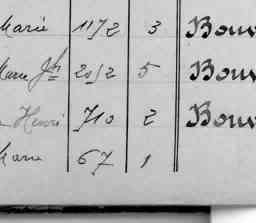 Marie 1172 3 Bouv
Marie Jh 2012 5 Bouv
Henri 710 2 Bouv
Marie 67 1